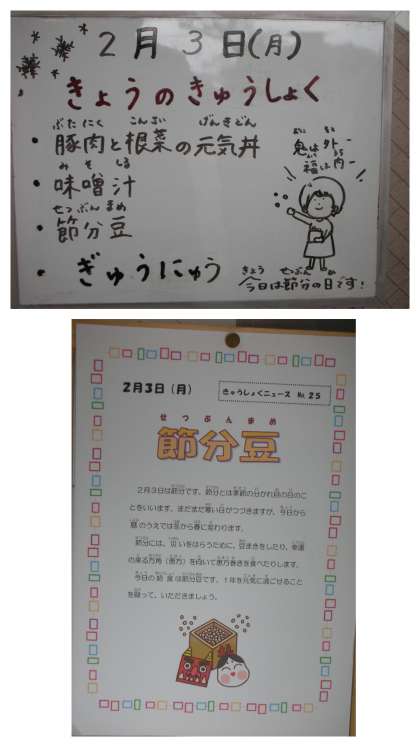 2月3日(月)
きょうのきゅうしょく
・豚肉と根菜の元気丼
ぶたにく こんさい げんきどん
・味噌汁
みそしる
・節分豆
せつぶんまめ
・ぎゅうにゅう
鬼は外ー
福は内ー
今日は節分の日です!
きょう せつぶん ひ
2月3日(月)
きゅうしょくニュース No.25
せつぶんまめ
節分豆
2月3日は節分です。節分とは季節の分かれ目の日のこ
とをいいます。まだまだ寒い日がつづきますが、今日から
暦のうえでは冬から春に変わります。
節分には、災いをはらうために、豆まきをしたり、幸運
の来る方角(恵方)を向いて恵方巻きを食べたりします。
今日の給食は節分豆です。1年を元気に過ごせること
を願って、いただきましょう。